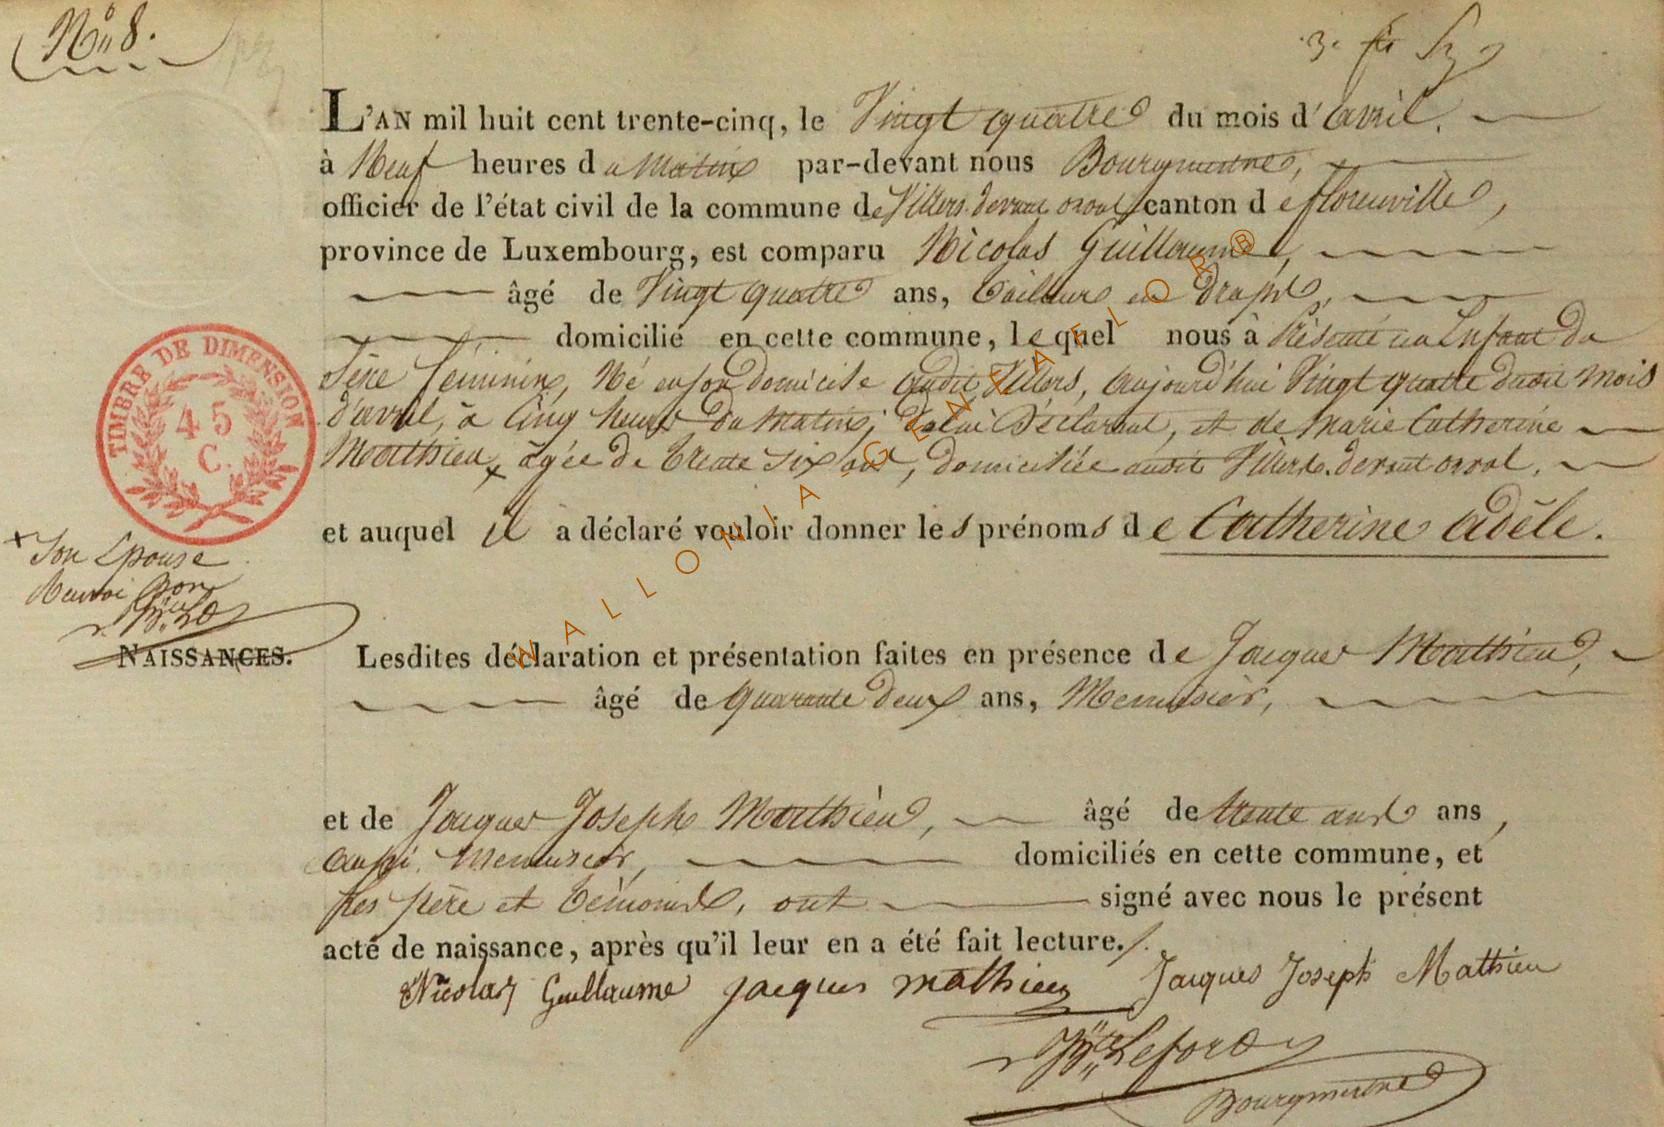 N° 8.
L'AN mil huit cent trente-cinq, le Vingt quatre du mois d'avril,
à Neuf heures du Matin par-devant nous Bourgmestre,
officier de l'état civil de la commune de Villers devant orval canton de florenville,
province de Luxembourg, est comparu Nicolas Guillaume,
âgé de Vingt quatre ans, tailleur en draps,
domicilié en cette commune, lequel nous à Présenté un Enfant du
Sexe féminin, Né en son domicile audit Villers, aujourd'hui Vingt quatre dudit mois
d'avril, à Cinq heures du Matin, de lui Déclarant, et de Marie Catherine
Mathieu, + âgée de trente six ans, domiciliée audit Villers devant orval,
et auquel il a déclaré vouloir donner les prénoms de Catherine adèle.
+ Son Epouse
Renvoi Bon
NAISSANCES.
Lesdites déclaration et présentation faites en présence de Jacques Mathieu,
âgé de quarante deux ans, Menusier,
et de Jacques Joseph Mathieu, âgé de trente ans,
aussi Menusier, domiciliés en cette commune, et
les père et témoins, ont signé avec nous le présent
acte de naissance, après qu'il leur en a été fait lecture./.
Nicolas Guillaume jacques mathieu Jacques Joseph Mathieu
Lefort
Bourgmestre
TIMBRE DE DIMENSION
45
C.
WALLONIA-GENEAFLOR®